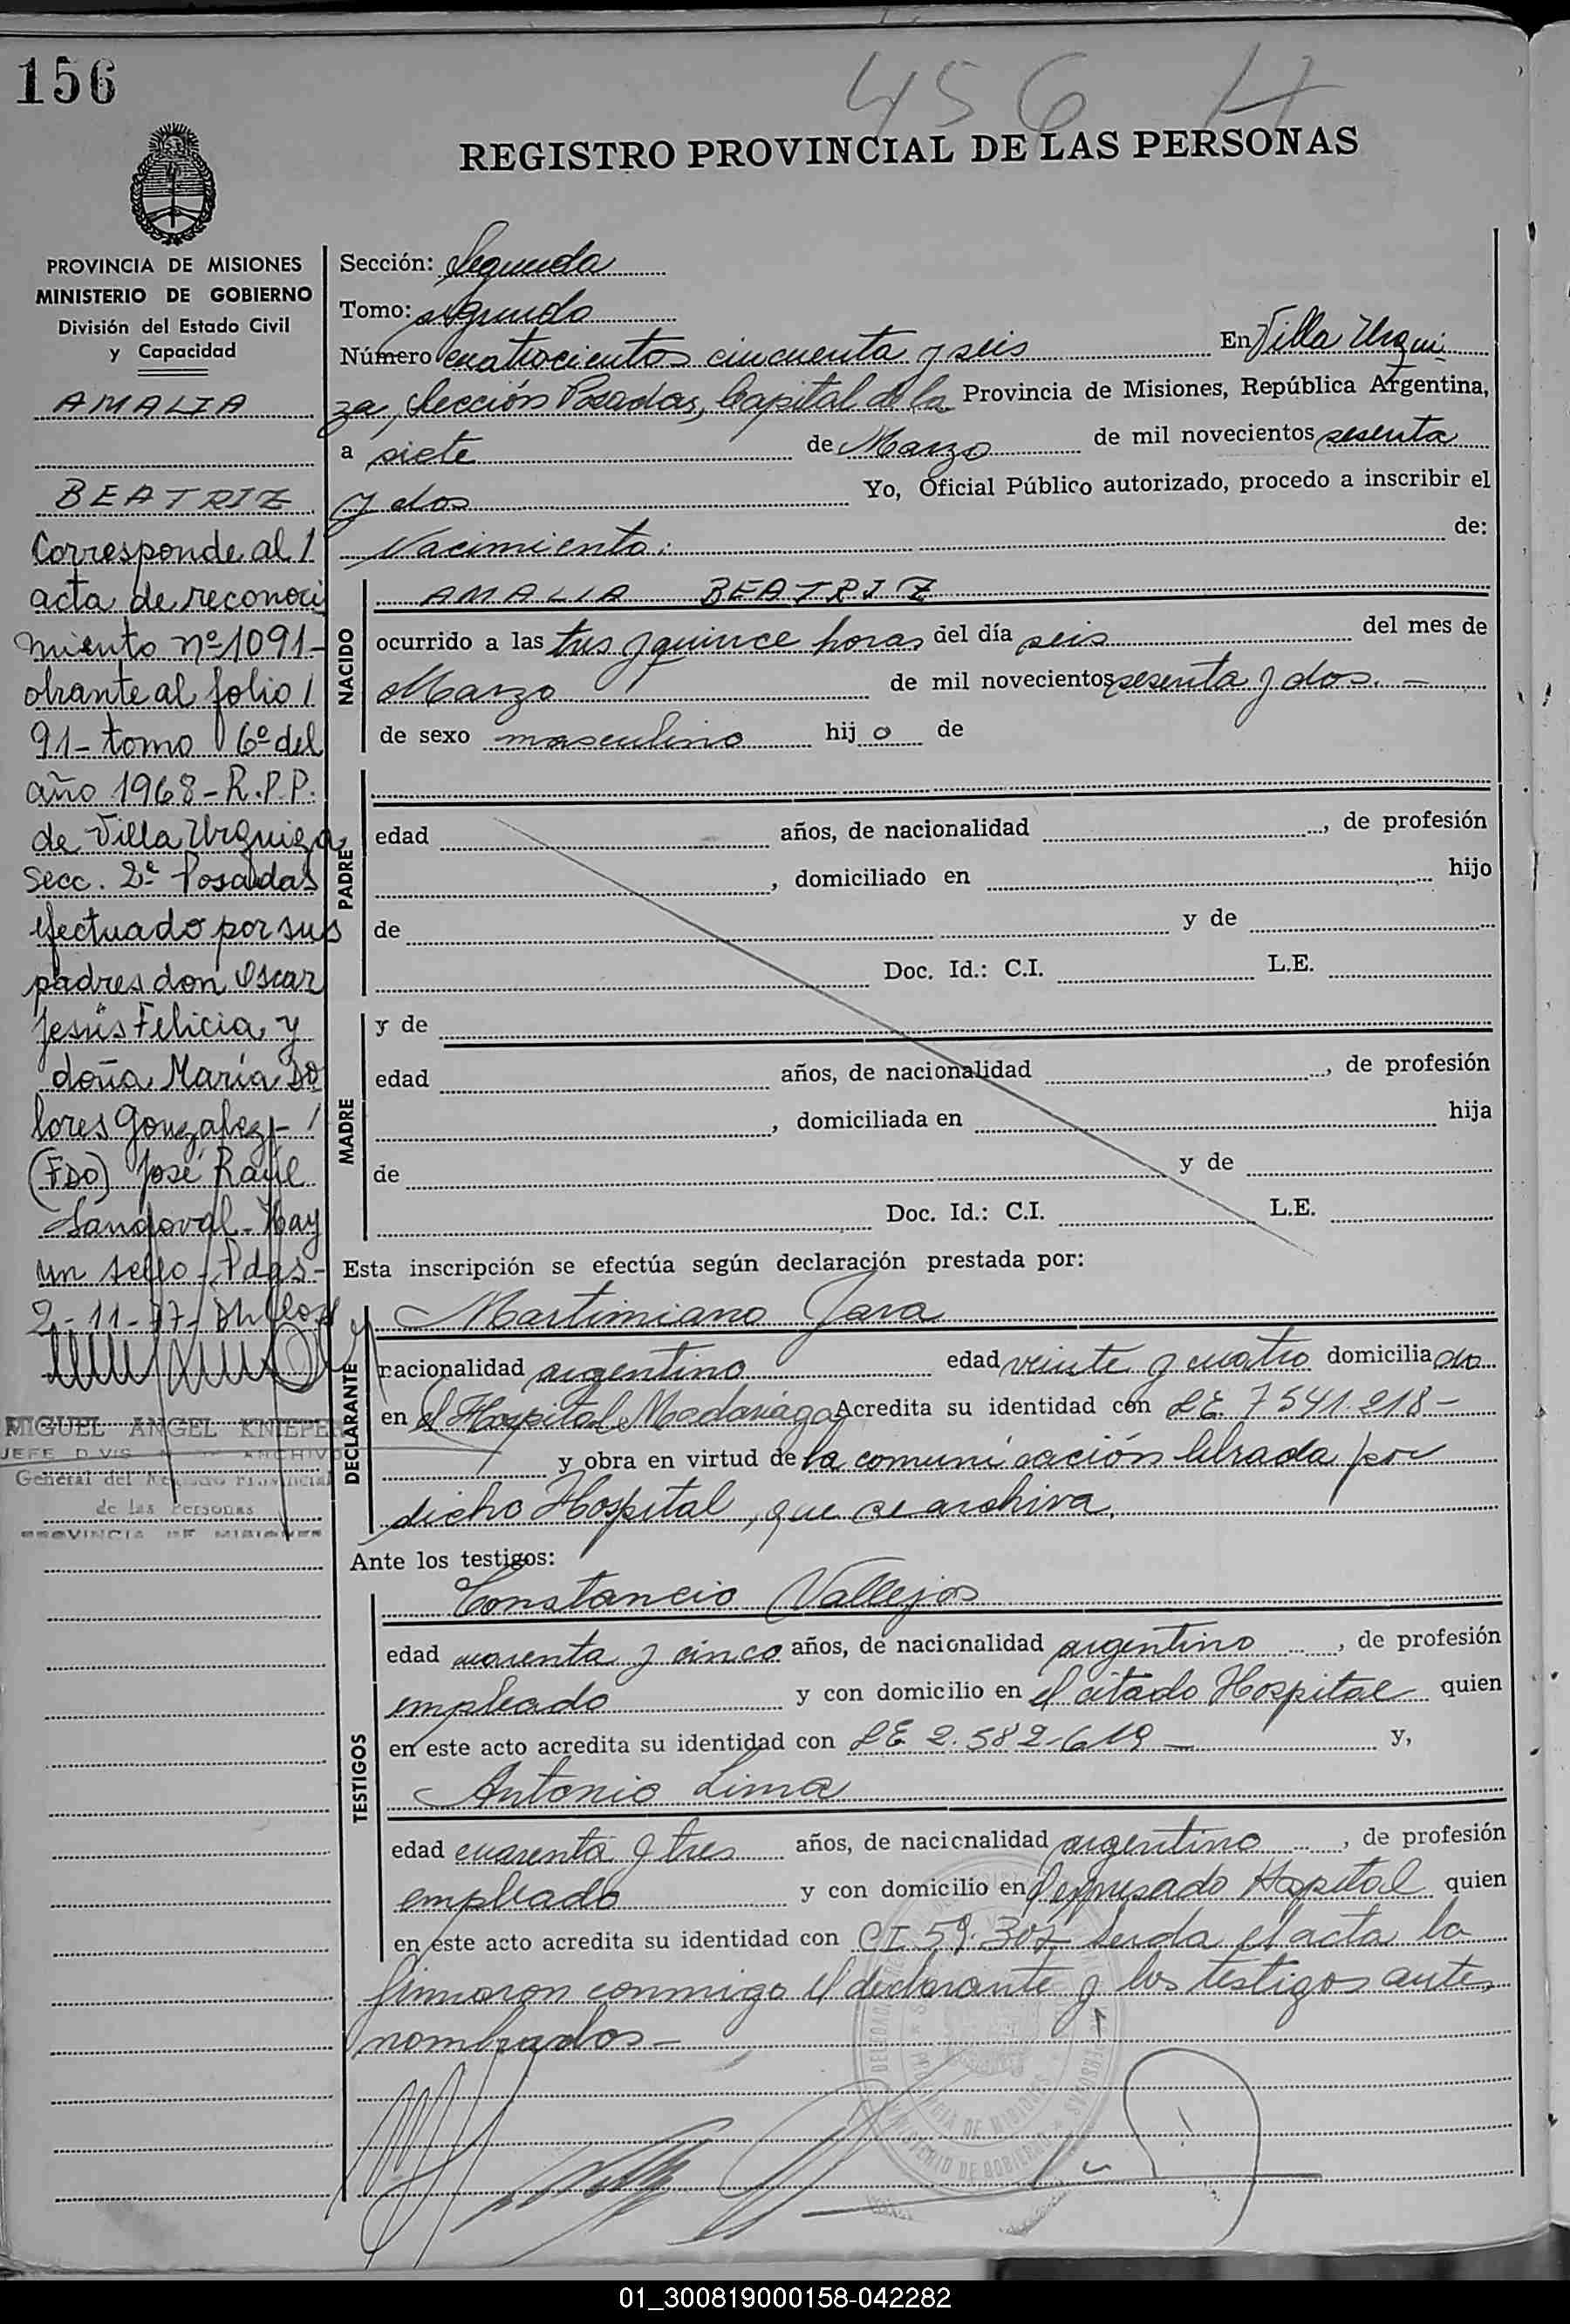 156
456 H
REGISTRO PROVINCIAL DE LAS PERSONAS
PROVINCIA DE MISIONES
MINISTERIO DE GOBIERNO
División del Estado Civil
y Capacidad
AMALIA
BEATRIZ
Corresponde al /
acta de reconoci
miento nº 1091-
obrante al folio /
91- tomo 6º del
año 1968 - R.P.P.
de Villa Urquiza
Secc. 2ª Posadas
efectuado por sus
padres don Oscar
Jesús Felicia y
doña María Do
lores Gonzalez - /
(FDO) José Raúl
Sandoval - Hay
un sello - Pdas -
2-11-77-
MIGUEL ANGEL KNIEPER
JEFE DVIS ARCHIVO
General del Registro Provincial
de las Personas
PROVINCIA DE MISIONES
Sección: Segunda
Tomo: segundo
Número cuatrocientos cincuenta y seis En Villa Urqui
za, Sección Posadas, Capital de la Provincia de Misiones, República Argentina,
a siete de Marzo de mil novecientos sesenta
y dos Yo, Oficial Público autorizado, procedo a inscribir el
Nacimiento: de:
NACIDO
AMALIA BEATRIZ
ocurrido a las tres y quince horas del día seis del mes de
Marzo de mil novecientos sesenta y dos. -
de sexo masculino hijo de
PADRE
edad años, de nacionalidad , de profesión
, domiciliado en hijo
de y de
Doc. Id.: C.I. L.E.
MADRE
y de
edad años, de nacionalidad , de profesión
, domiciliada en hija
de y de
Doc. Id.: C.I. L.E.
Esta inscripción se efectúa según declaración prestada por:
DECLARANTE
Martimiano Jara
nacionalidad argentino edad veinte y cuatro domiciliado
en el Hospital Madariaga Acredita su identidad con LE 7541.218-
y obra en virtud de la comunicación librada por
dicho Hospital, que se archiva.
Ante los testigos:
TESTIGOS
Constancio Vallejos
edad cuarenta y cinco años, de nacionalidad argentino , de profesión
empleado y con domicilio en el citado Hospital quien
en este acto acredita su identidad con LE 2.582-619 - y,
Antonio Lima
edad cuarenta y tres años, de nacionalidad argentino , de profesión
empleado y con domicilio en el expresado Hospital quien
en este acto acredita su identidad con CI 59.307 Leida el acta la
firmaron conmigo el declarante y los testigos ante
nombrados -
01_300819000158-042282